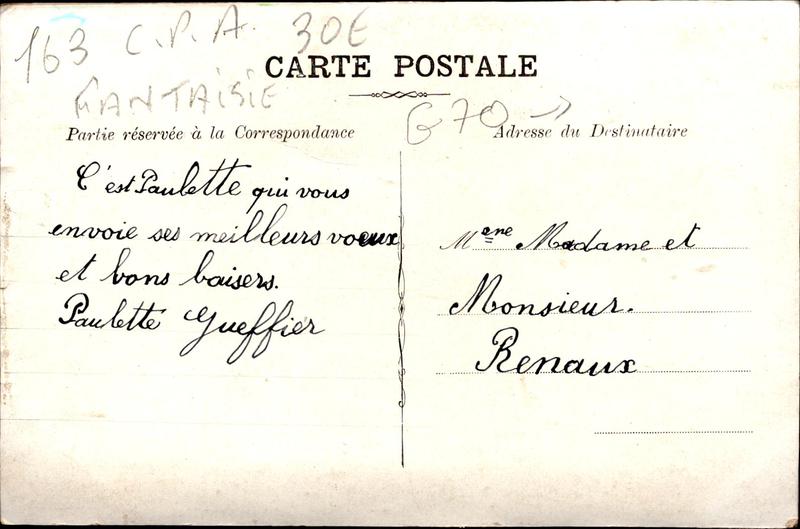 163 C.P.A. 30E
CARTE POSTALE
FANTAISIE
G70
Partie réservée à la Correspondance
Adresse du Destinataire
C'est Paulette qui vous
envoie ses meilleurs voeux
et bons baisers.
Paulette Gueffier
Madame et
Monsieur.
Renaux